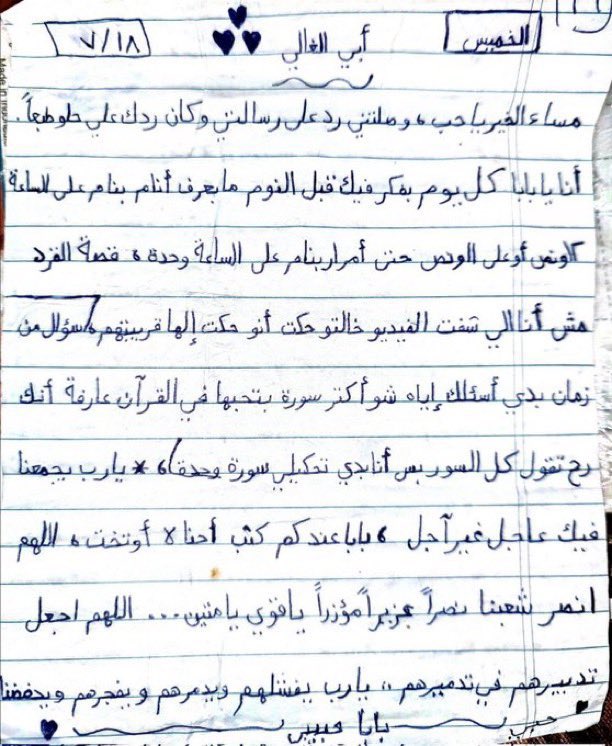 الخميس
أبي الغالي
٧/١٨
مساء الخير يا حب، وصلتني رد على رسالتي وكان ردك علي حلو طبعاً.
أنا يا بابا كل يوم بفكر فيك قبل النوم ما بعرف أنام بنام على الساعة
ونص أو على الونص حتى أمرار بنام على الساعة وحدة، قصة القرد
مش أنا الي شفت الفيديو خالتو حكت أنو حكت إلها قريبتهم، (سؤال من
زمان بدي أسئلك إياه شو أكتر سورة بتحبها في القرآن عارفة أنك
رح تقول كل السور بس أنا بدي تحكيلي سورة وحدة)، * يا رب يجمعنا
فيك عاجل غير آجل، بابا عندكم كتب أحنا لا أوتخت، اللهم
انصر شعبنا نصراً عزيزاً مؤزراً يا قوي يا متين... اللهم اجعل
تدبيرهم في تدميرهم،، يا رب يفشلهم ويدمرهم ويفجرهم ويحفضنا
بابا حبيبي
حبيبي